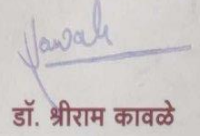 डॉ. श्रीराम कावळे